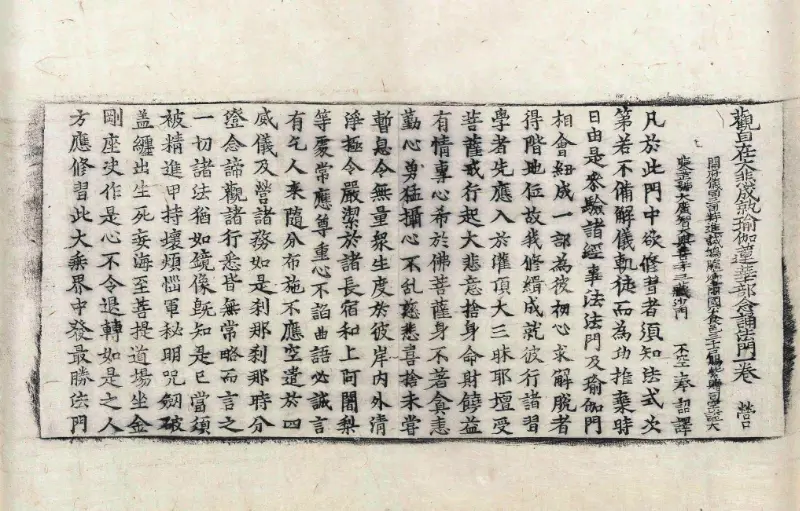 觀自在大悲成就瑜伽蓮華部念誦法門一卷 營
開府儀同三司特進試鴻臚卿肅國公食邑三千戶賜紫贈司空謚大
廣智大興善寺三藏沙門 不空奉 詔譯
凡於此門中欲修習者須知法式次
第若不備解儀軌徒而為功推藥時
日由是參驗諸經峯法法門及瑜伽門
相會紐成一部為彼初心求解脫者
得階地位故我修緝成就彼行諸習
學者先應入於灌頂大三昧耶壇受
菩薩戒行起大悲意捨身命財饒益
有情專心希於佛菩薩身不著貪恚
勤心勇猛攝心不亂慈悲喜捨未嘗
暫息令無量眾生度於彼岸內外清
淨極令嚴潔於諸長宿和上阿闍梨
等處常應尊重心不諂曲語必誠言
有乞人来隨分布施不應空遣於四
威儀及營諸務如是剎那剎那時分
澄念諦觀諸行悉皆無常略而言之
一切諸法猶如鏡像旣知是已當須
被精進甲持壞煩惱軍秘明呪劒破
盖纏出生死妄海至菩提道場坐金
剛座决作是心不令退轉如是之人
方應修習此大乘界中發最勝法門